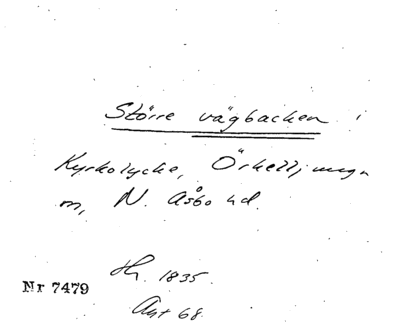 Större vägbacken i
Kyrkolycke, Örkelljunga
m, N. Åsbo hd.
Hr. 1835.
Nr 7479
Ant 68.